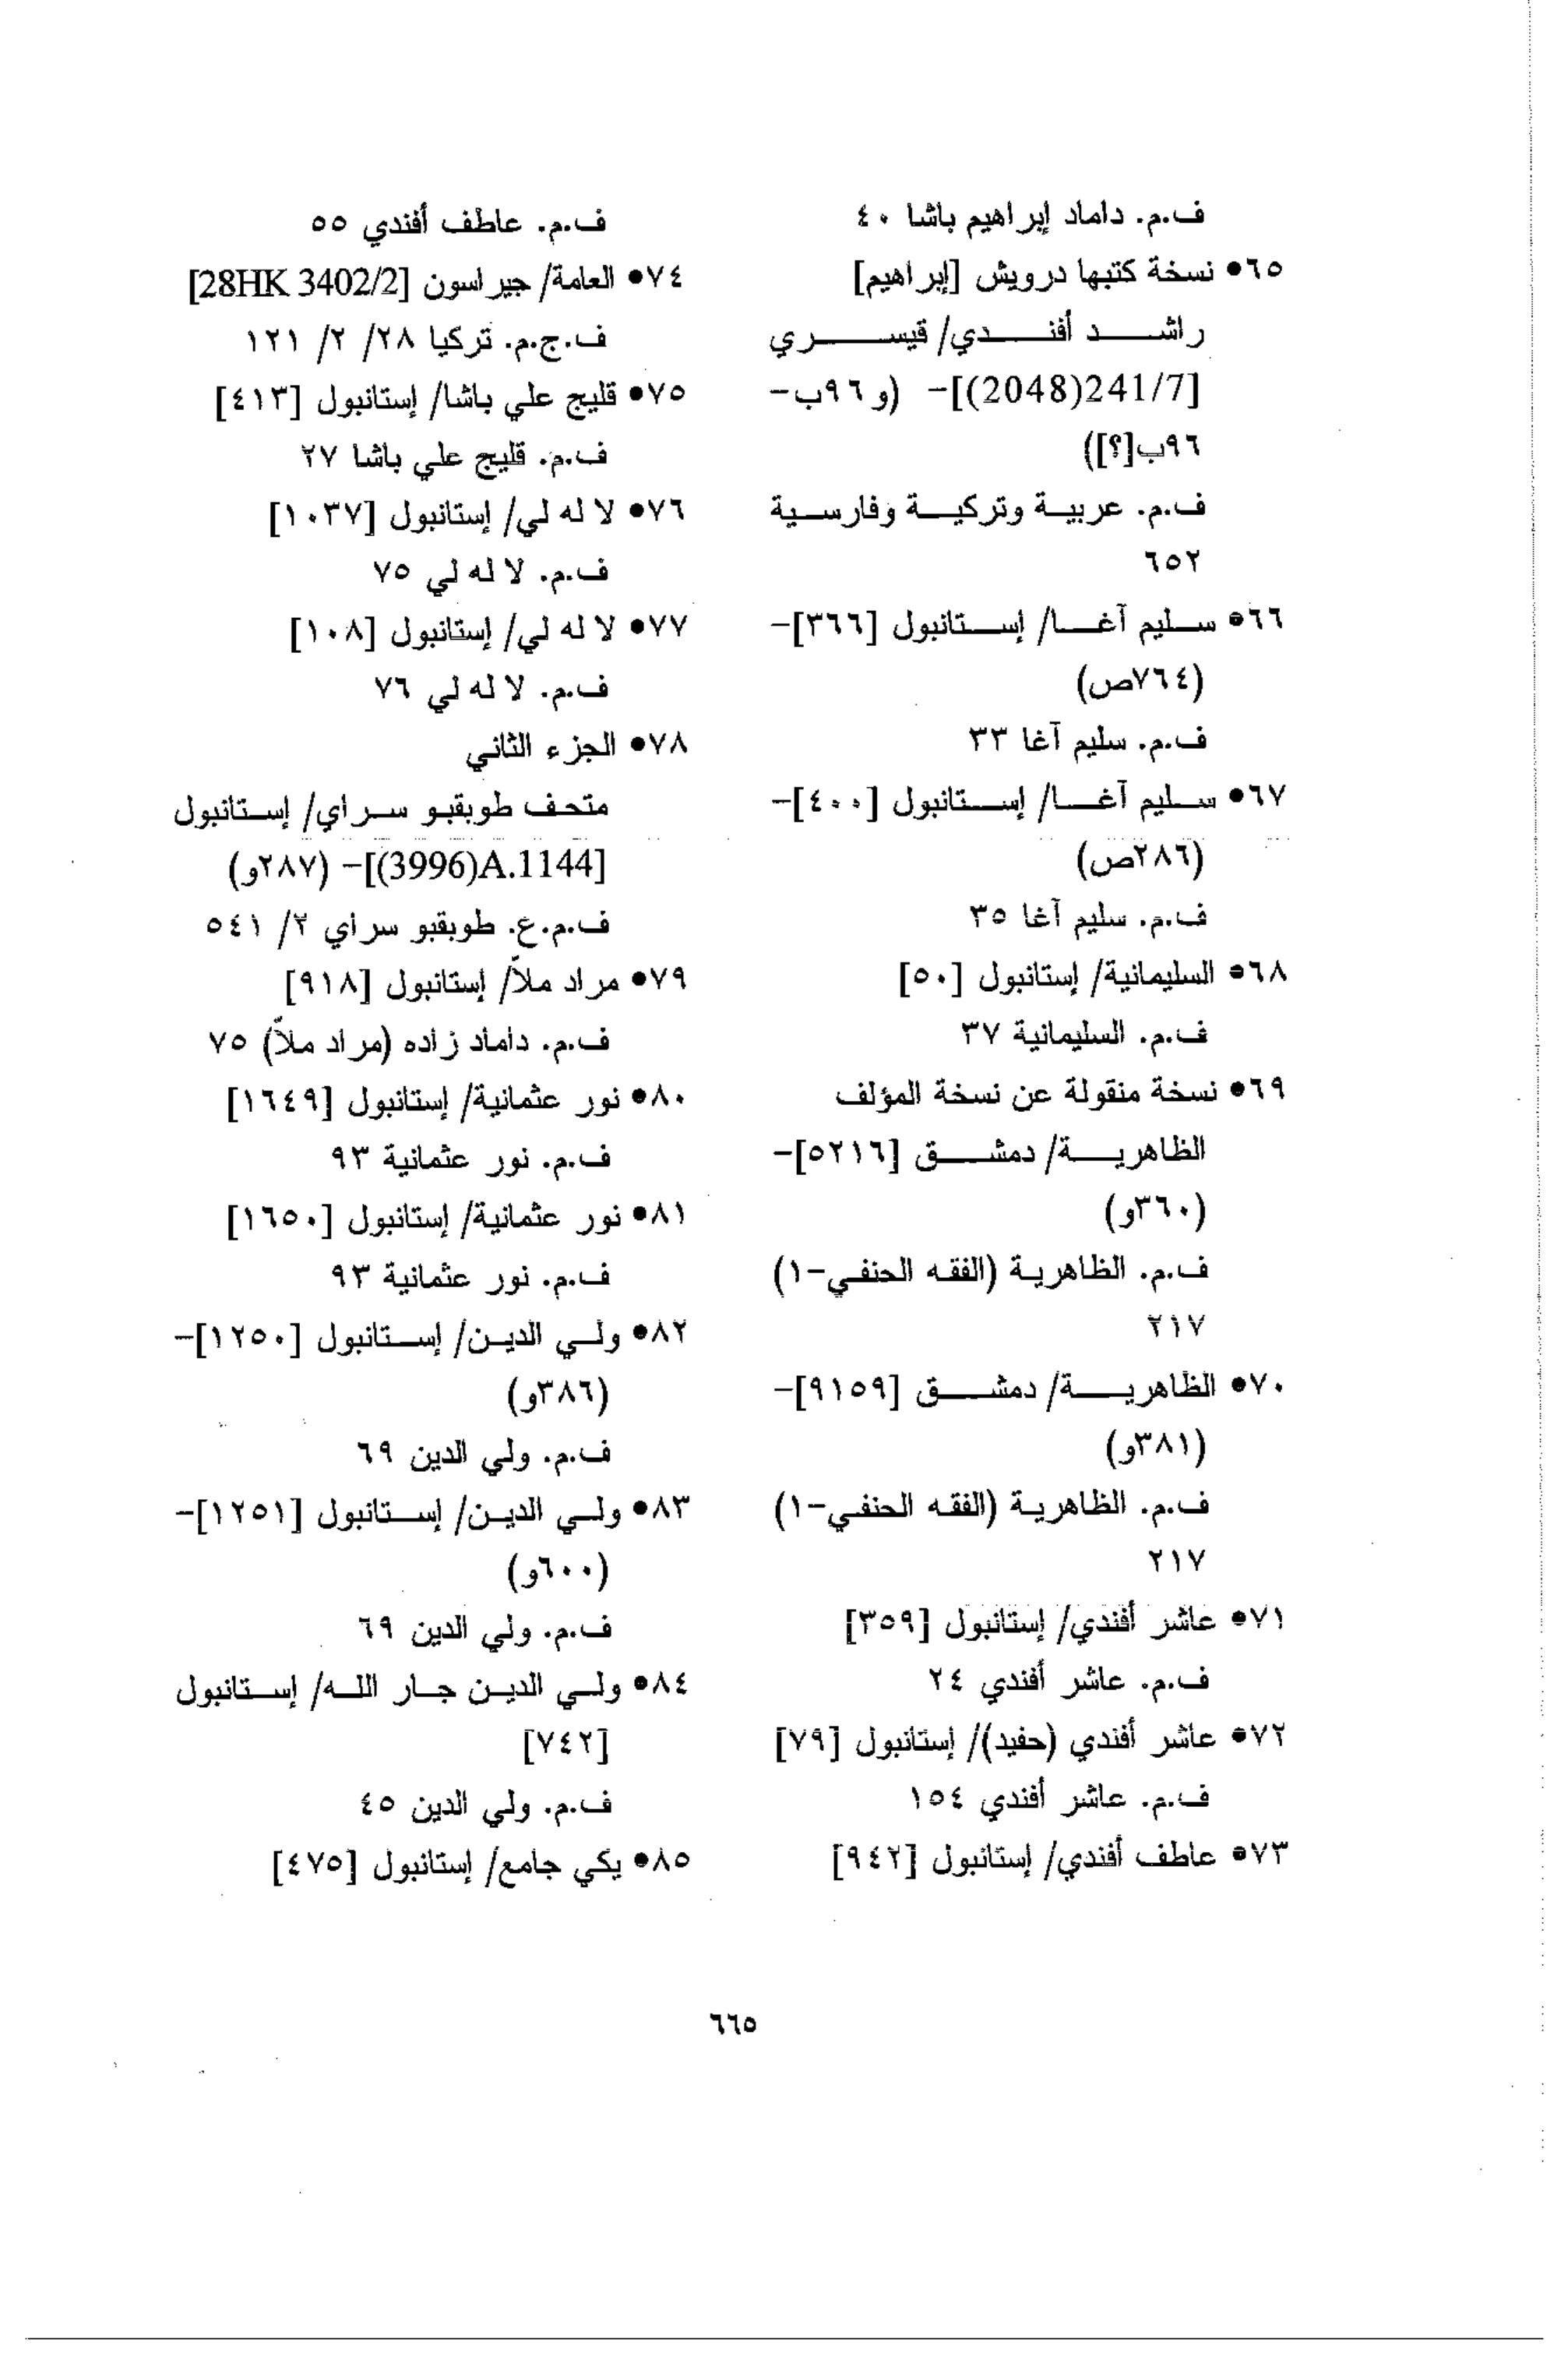 ف.م. داماد إبراهيم باشا ٤٠
٦٥• نسخة كتبها درويش [إبراهيم]
راشد أفندي/ قيسري
[241/7(2048)]- (و٩٦ب-
٩٦ب[؟])
ف.م. عربية وتركية وفارسية
٦٥٢
٦٦• سليم آغا/ إستانبول [٣٦٦]-
(٧٦٤ص)
ف.م. سليم آغا ٣٣
٦٧• سليم آغا/ إستانبول [٤٠٠]-
(٢٨٦ص)
ف.م. سليم آغا ٣٥
٦٨• السليمانية/ إستانبول [٥٠]
ف.م. السليمانية ٣٧
٦٩• نسخة منقولة عن نسخة المؤلف
الظاهرية/ دمشق [٥٢١٦]-
(٣٦٠و)
ف.م. الظاهرية (الفقه الحنفي-١)
٢١٧
٧٠• الظاهرية/ دمشق [٩١٥٩]-
(٣٨١و)
ف.م. الظاهرية (الفقه الحنفي-١)
٢١٧
٧١• عاشر أفندي/ إستانبول [٣٥٩]
ف.م. عاشر أفندي ٢٤
٧٢• عاشر أفندي (حفيد)/ إستانبول [٧٩]
ف.م. عاشر أفندي ١٥٤
٧٣• عاطف أفندي/ إستانبول [٩٤٢]
ف.م. عاطف أفندي ٥٥
٧٤• العامة/ جيراسون [28HK 3402/2]
ف.ج.م. تركيا ٢٨/ ٢/ ١٢١
٧٥• قليج علي باشا/ إستانبول [٤١٣]
ف.م. قليج علي باشا ٢٧
٧٦• لا له لي/ إستانبول [١٠٣٧]
ف.م. لا له لي ٧٥
٧٧• لا له لي/ إستانبول [١٠٨]
ف.م. لا له لي ٧٦
٧٨• الجزء الثاني
متحف طوبقبو سراي/ إستانبول
[A.1144(3996)]- (٢٨٧و)
ف.م.ع. طوبقبو سراي ٢/ ٥٤١
٧٩• مراد ملاّ/ إستانبول [٩١٨]
ف.م. داماد زاده (مراد ملاّ) ٧٥
٨٠• نور عثمانية/ إستانبول [١٦٤٩]
ف.م. نور عثمانية ٩٣
٨١• نور عثمانية/ إستانبول [١٦٥٠]
ف.م. نور عثمانية ٩٣
٨٢• ولي الدين/ إستانبول [١٢٥٠]-
(٣٨٦و)
ف.م. ولي الدين ٦٩
٨٣• ولي الدين/ إستانبول [١٢٥١]-
(٦٠٠و)
ف.م. ولي الدين ٦٩
٨٤• ولي الدين جار الله/ إستانبول
[٧٤٢]
ف.م. ولي الدين ٤٥
٨٥• يكي جامع/ إستانبول [٤٧٥]
٦٦٥